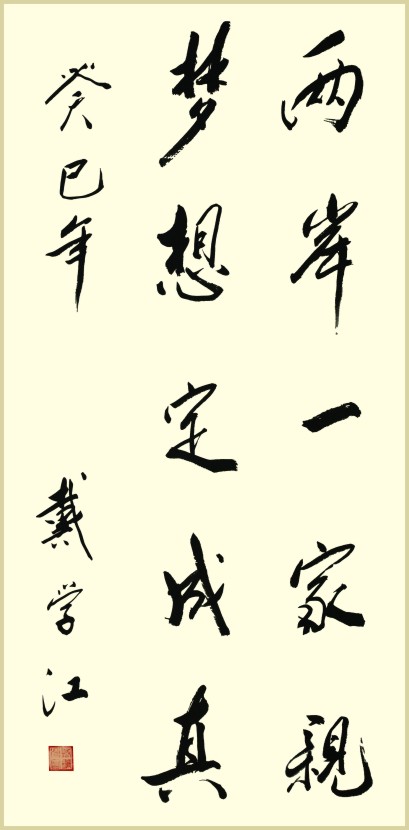 两岸一家親
梦想定成真
癸巳年 戴学江